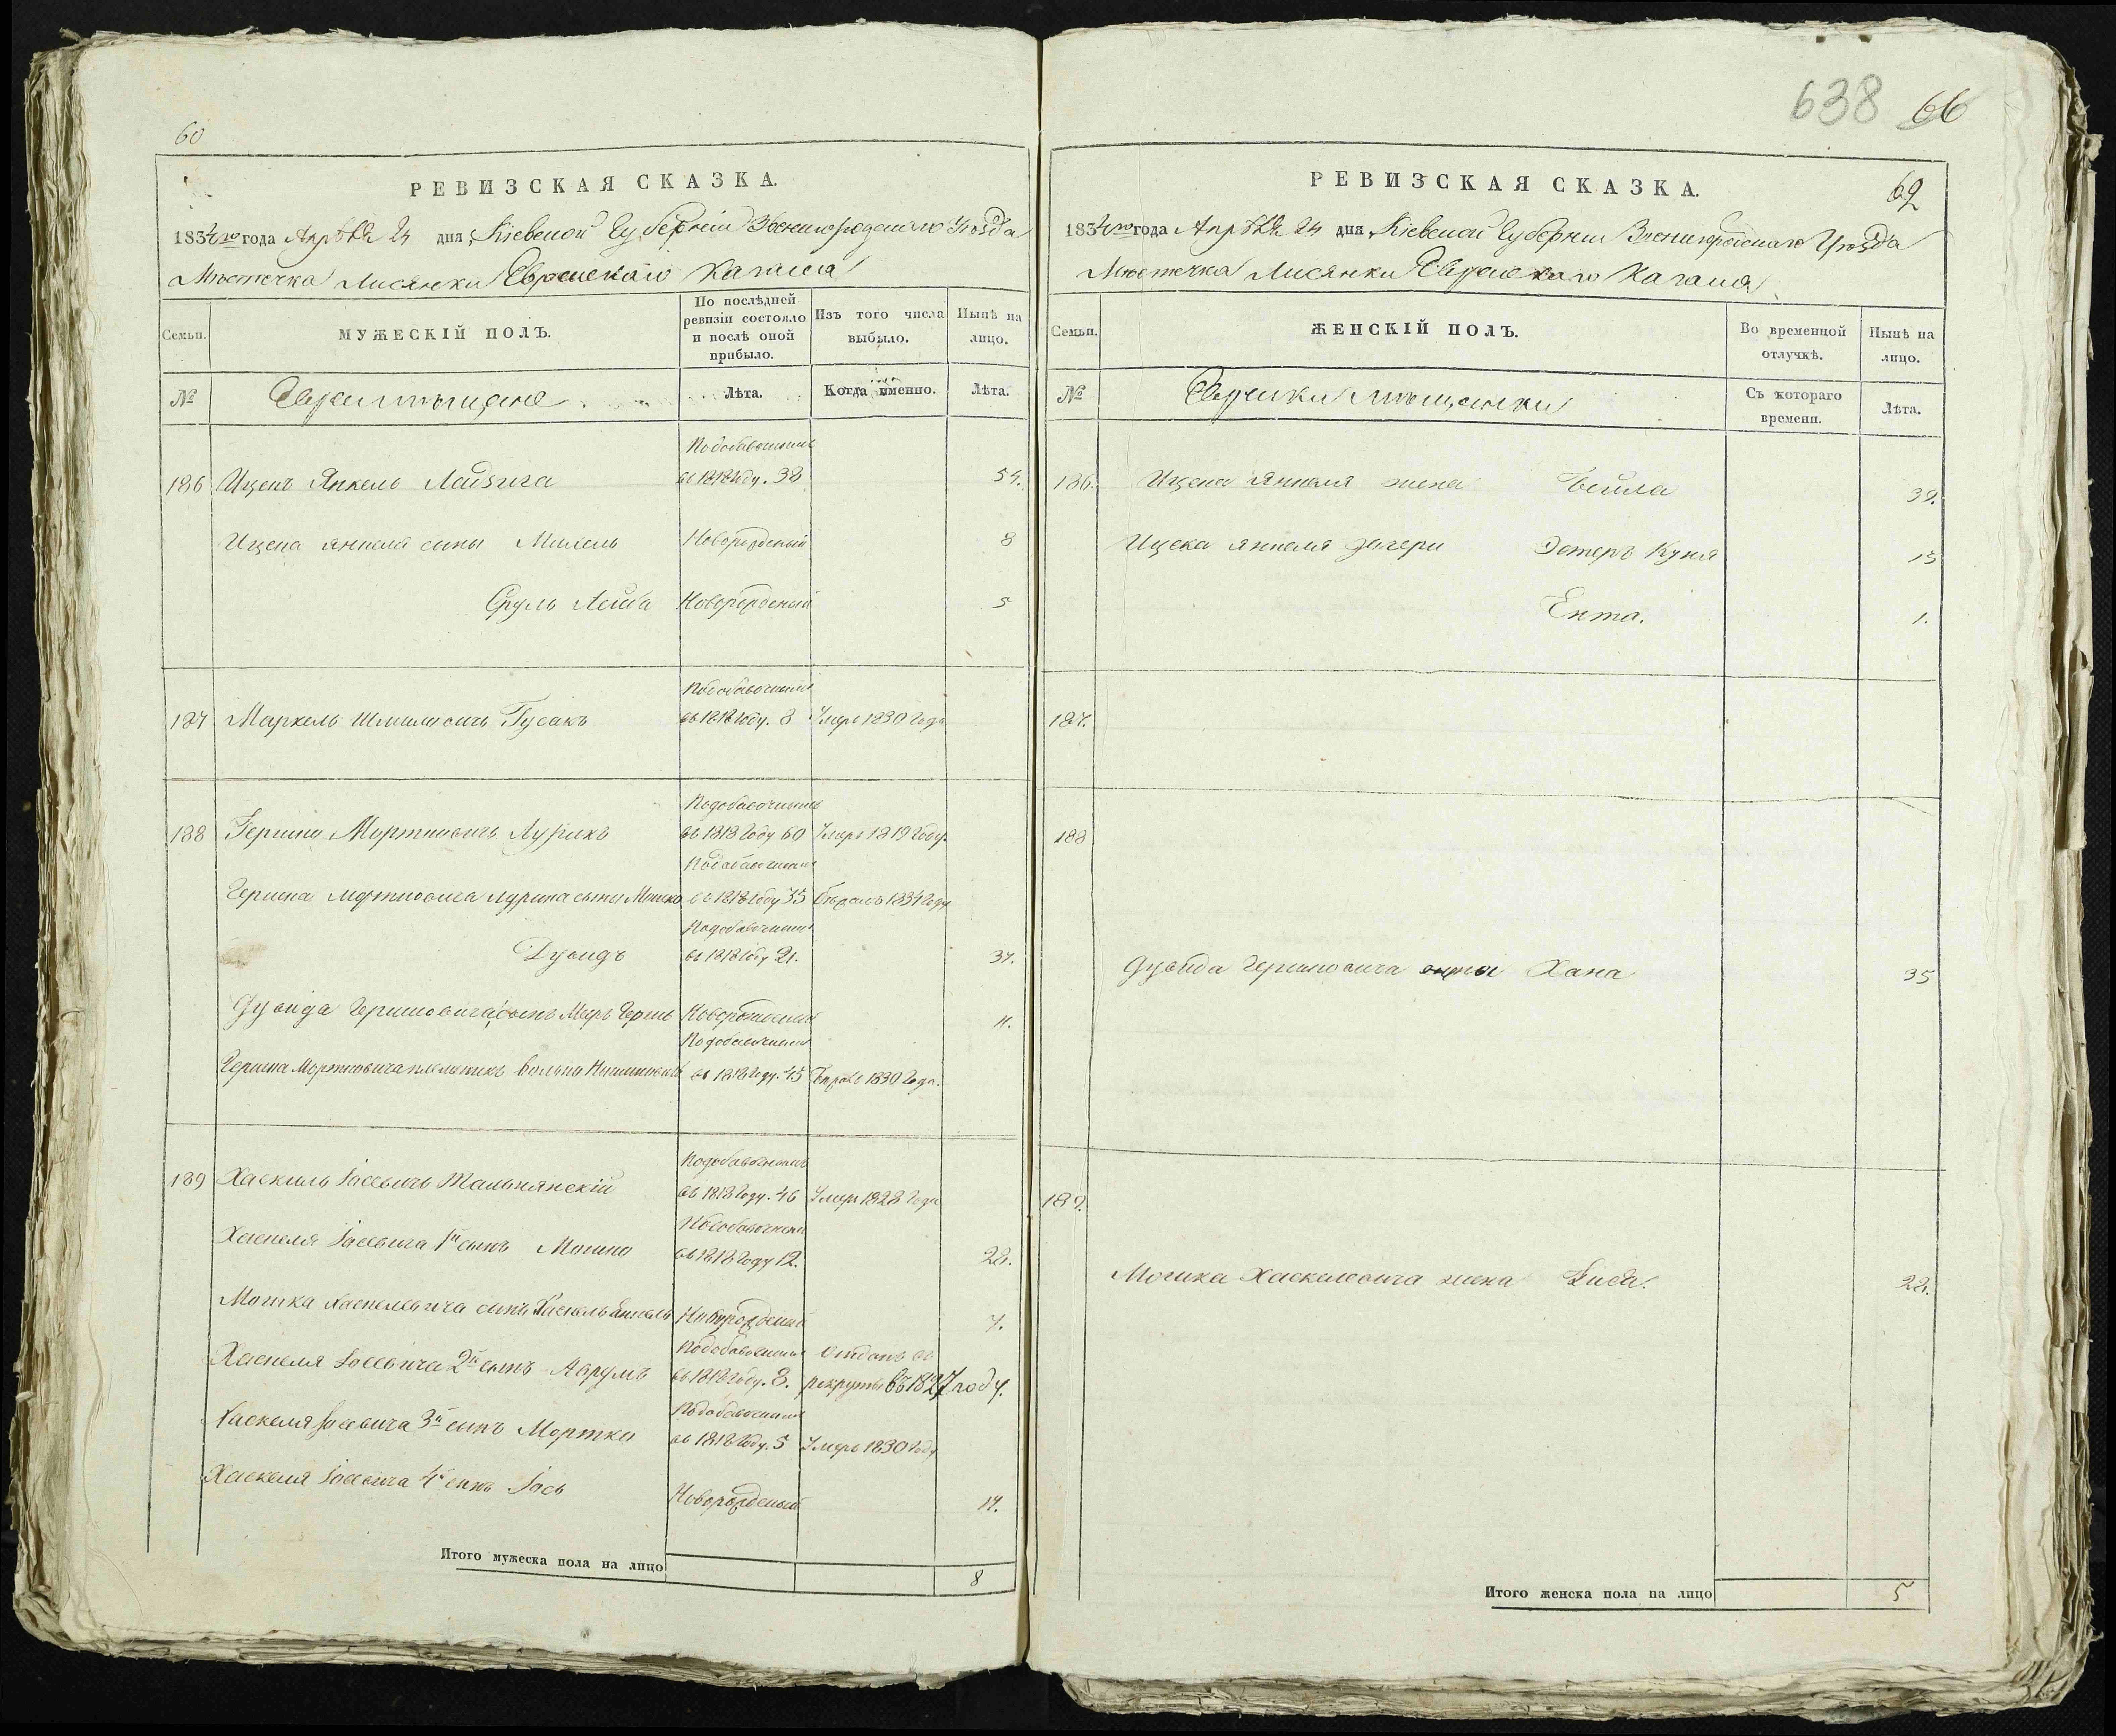 60
РЕВИЗСКАЯ СКАЗКА.
1834го года Апрѣля 24 дня, Кіевской Губерніи Звенигородскаго Уѣзда
Мѣстечка Лисянки Еврейскаго Кагала
Семьи.
МУЖЕСКІЙ ПОЛЪ.
По послѣдней ревизіи состояло и послѣ оной прибыло.
Изъ того числа выбыло.
Нынѣ на лицо.
№
Евреи мѣщане
Лѣта.
Когда именно.
Лѣта.
186 Ицекъ Янкель
въ 1818 году. 38
54.
Ицека Янкеля сыны Михель Новорожденый 8
Сруль Лейба Новорожденый 5
187 Маркель Гусакъ
въ 1818 году. 8 Умеръ 1830 года
188 Гершко Мортковичъ Лурикъ
въ 1818 году 60 Умеръ 1819 году.
Гершка Мортковича Лурика сыны Мошко въ 1818 году 35 1834 году
Дувидъ въ 1818 году 21. 37.
Дувида Гершковича сынъ Меръ Гершъ Новорожденый 11.
Гершка Мортковича племеникъ въ 1818 году. 45 1830 года.
189 Хаскиль Іосевичъ Тальнянскій
въ 1818 году. 46 Умеръ 1828 года
Хаскеля Іосевича 1й сынъ Мошко
въ 1818 году 12. 28.
Мошка Хаскелевича сынъ Хаскель Новорожденый 7.
Хаскеля Іосевича 2й сынъ Аврумъ
въ 1818 году. 8. Отданъ въ рекруты въ 1827 году.
Хаскеля Іосевича 3й сынъ Мортко
въ 1818 году. 5 Умеръ 1830 году
Хаскеля Іосевича 4й сынъ Іось Новорожденый 17.
Итого мужеска пола на лицо 8
638 66
РЕВИЗСКАЯ СКАЗКА.
62
1834го года Апрѣля 24 дня, Кіевской Губерніи Звенигородскаго Уѣзда
Мѣстечка Лисянки Еврейскаго Кагала
Семьи.
ЖЕНСКІЙ ПОЛЪ.
Во временной отлучкѣ.
Нынѣ на лицо.
№
Еврейки мѣщанки
Съ котораго времени.
Лѣта.
186. Ицека Янкеля жена Бейла 39.
Ицека Янкеля дочери Эстеръ Куня 15
Ента. 1.
187.
188
Дувида Гершковича Хана 35
189.
Мошка Хаскелевича жена 22.
Итого женска пола на лицо 5